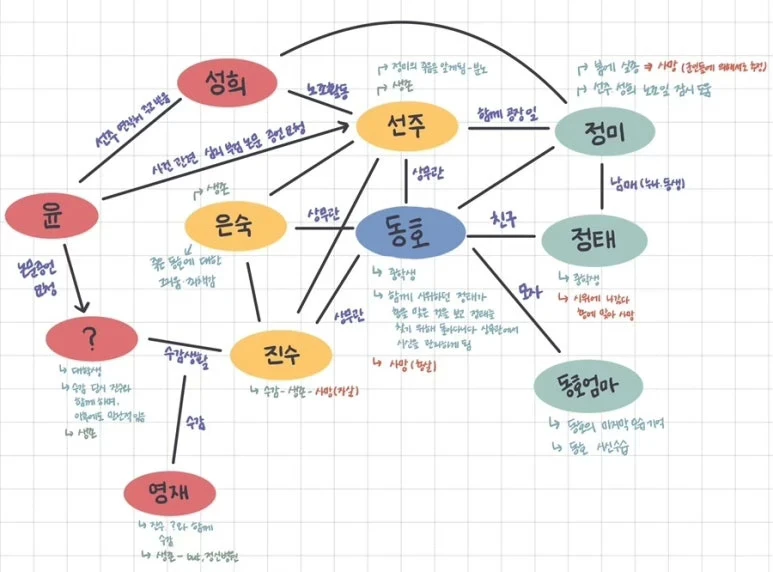 성희
선주 연락처 주고 받음
노조활동
정미의 죽음을 알게됨-분노
생존
선주
함께 공장 일
봄에 실종 → 사망 (군인들에 의해서로 추정)
선주 성희 노조일 잠시 도움
정미
사건 관련 심리 부검 논문 증언 요청
상무관
남매 (누나, 동생)
윤
생존
은숙
죽은 동호에 대한
그리움·죄책감
상무관
동호
친구
정태
중학생
시위에 나갔다
총에 맞아 사망
논문증언
요청
중학생
함께 시위하던 정태가
총을 맞은 것을 보고 정태를
찾기 위해 돌아다니다 상무관에서
시신을 관리하게 됨
사망 (총살)
모자
상무관
?
대학생
수감 당시 진수와
함께 하며,
이후에도 만난적 있음
생존
수감생활
진수
수감-생존-사망(자살)
동호엄마
동호의 마지막 모습 기억
동호 시신수습
수감
영재
진수, ?와 함께
수감
생존-but, 정신병원